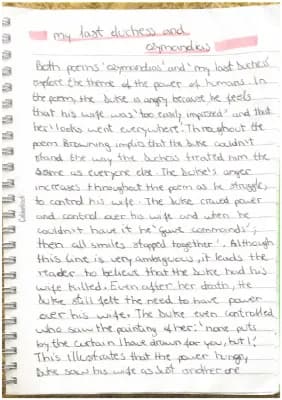 my last duchess and
ozymandias
Both poems 'ozymandias' and 'my last duchess'
explore the theme of the power of humans. In
the poem, the Duke is angry because he feels
that his wife was 'too easily impressed' and that
her 'looks went everywhere'. Throughout the
poem Browning implies that the Duke couldn't
stand the way the duchess treated him the
same as everyone else. The Duke's anger
increases throughout the poem as he struggles
to control his wife. The Duke craved power
and control over his wife and when he
couldn't have it he 'gave commands';
then all smiles stopped together'. Although
this line is very ambiguous, it leads the
reader to believe that the Duke had his
wife killed. Even after her death, the
Duke still felt the need to have power
over his wife. The Duke even controlled
who saw the painting of her: 'none puts
by the curtain I have drawn for you, but I'.
This illustrates that the power hungry
Duke saw his wife as just another one